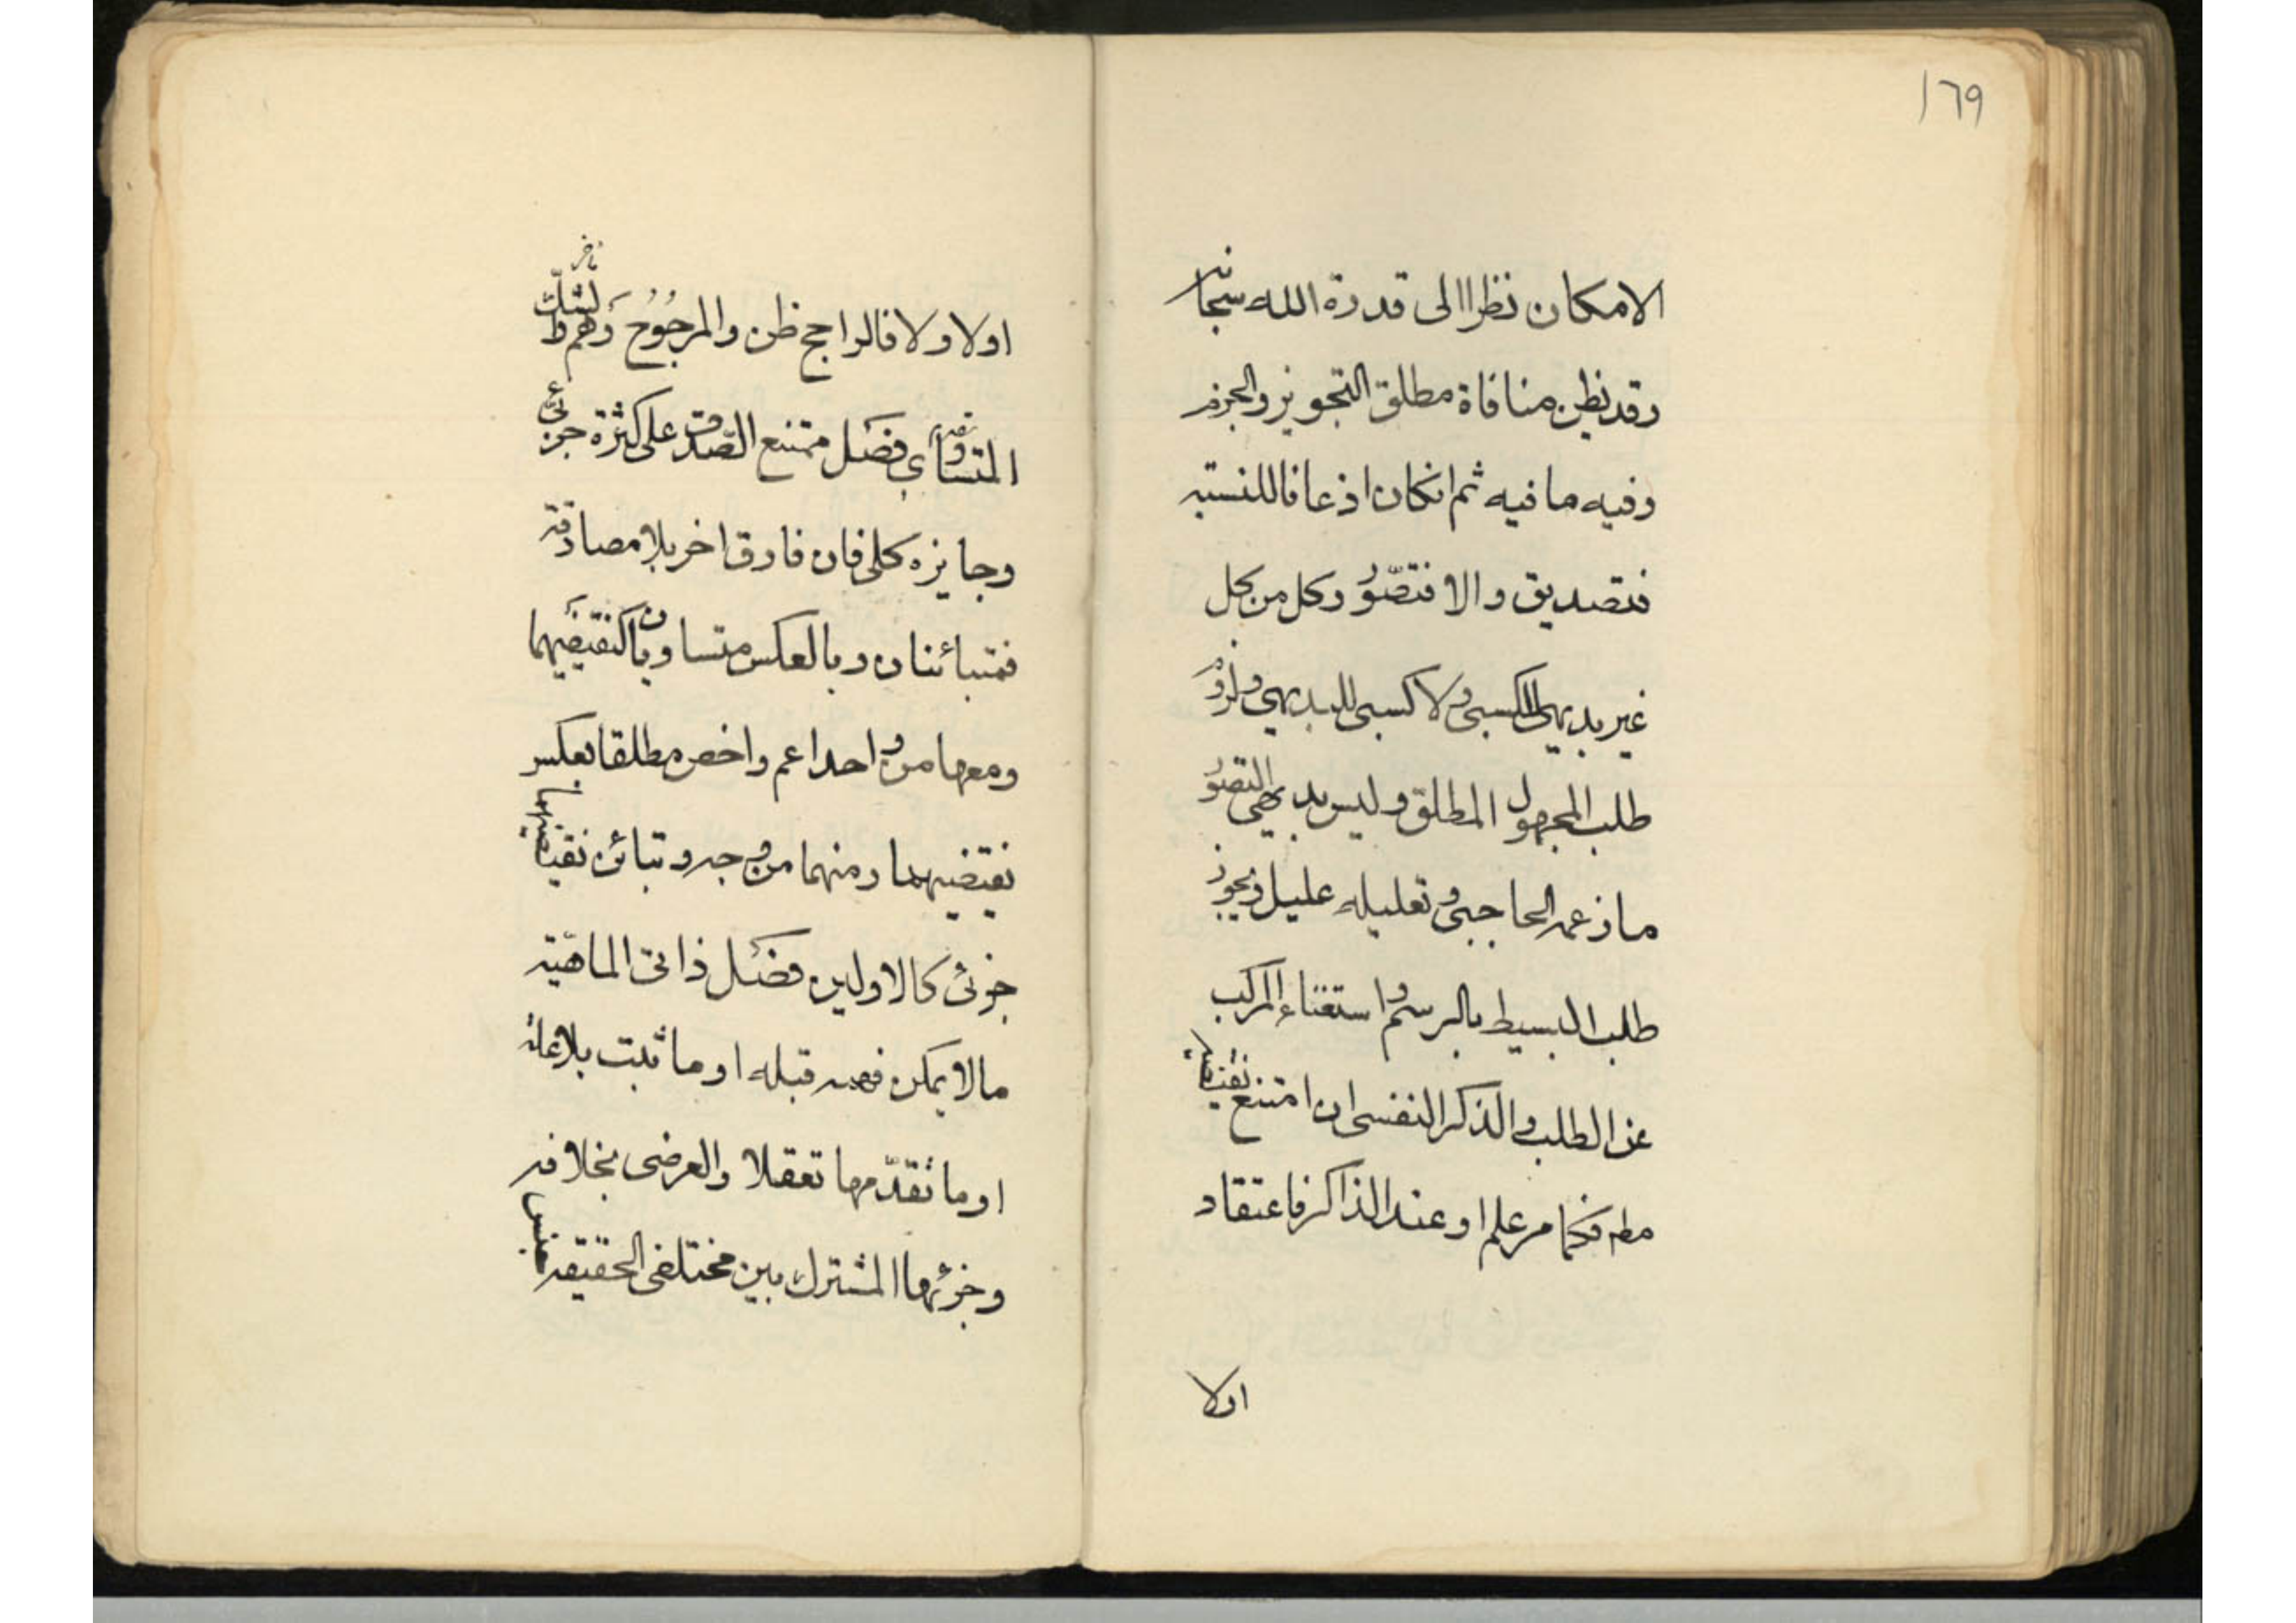 ١٦٩
الامكان نظرا الى قدرة الله سبحانه
وقد يظن منافاة مطلق التجويز والجزم
وفيه ما فيه ثم ان كان اذعانا للنسبة
فتصديق والا فتصوّر وكل من كل
غير بديهي للكسبي ولا كسبي للبديهي ولزوم
طلب المجهول المطلق وليس بديهي التصور
ما زعمه الحاجبي وتعليله عليل ويجوز
طلب البسيط بالرسم واستغناء المركب
عن الطلب والذكر النفسي ان امتنع نقيضه
مط فكما مر علم او عند الذاكر فاعتقاد
اولا
اولا ولا فالراجح ظن والمرجُوُح وَهم ط
المتساوي فصَل ممتنع الصّدق على كثرة جزئيّ
وجايزه كلى فان فارق اخر بلا مصادقة
فمتبائنان وبالعكس متساويان كنقيضَيهما
ومعها من واحد اعم واخص مطلقا بعكس
نقيضيهما ومنهما من وجه و تبائن نقيضيهما
جزئى كالاولين فصَل ذاتى الماهيّة
مالا يمكن فهمه قبله او ما ثبت بلا علة
او ما تقدّمها تعقلا والعرضى بخلافه
وجزئها المشترك بين مختلفى الحقيقة جنس